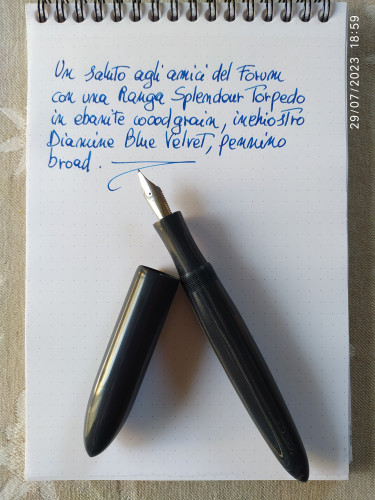 Un saluto agli amici del Forum
con una Ranga Splendour Torpedo
in ebanite woodgrain, inchiostro
Diamine Blue Velvet, pennino
broad.
29/07/2023 18:59